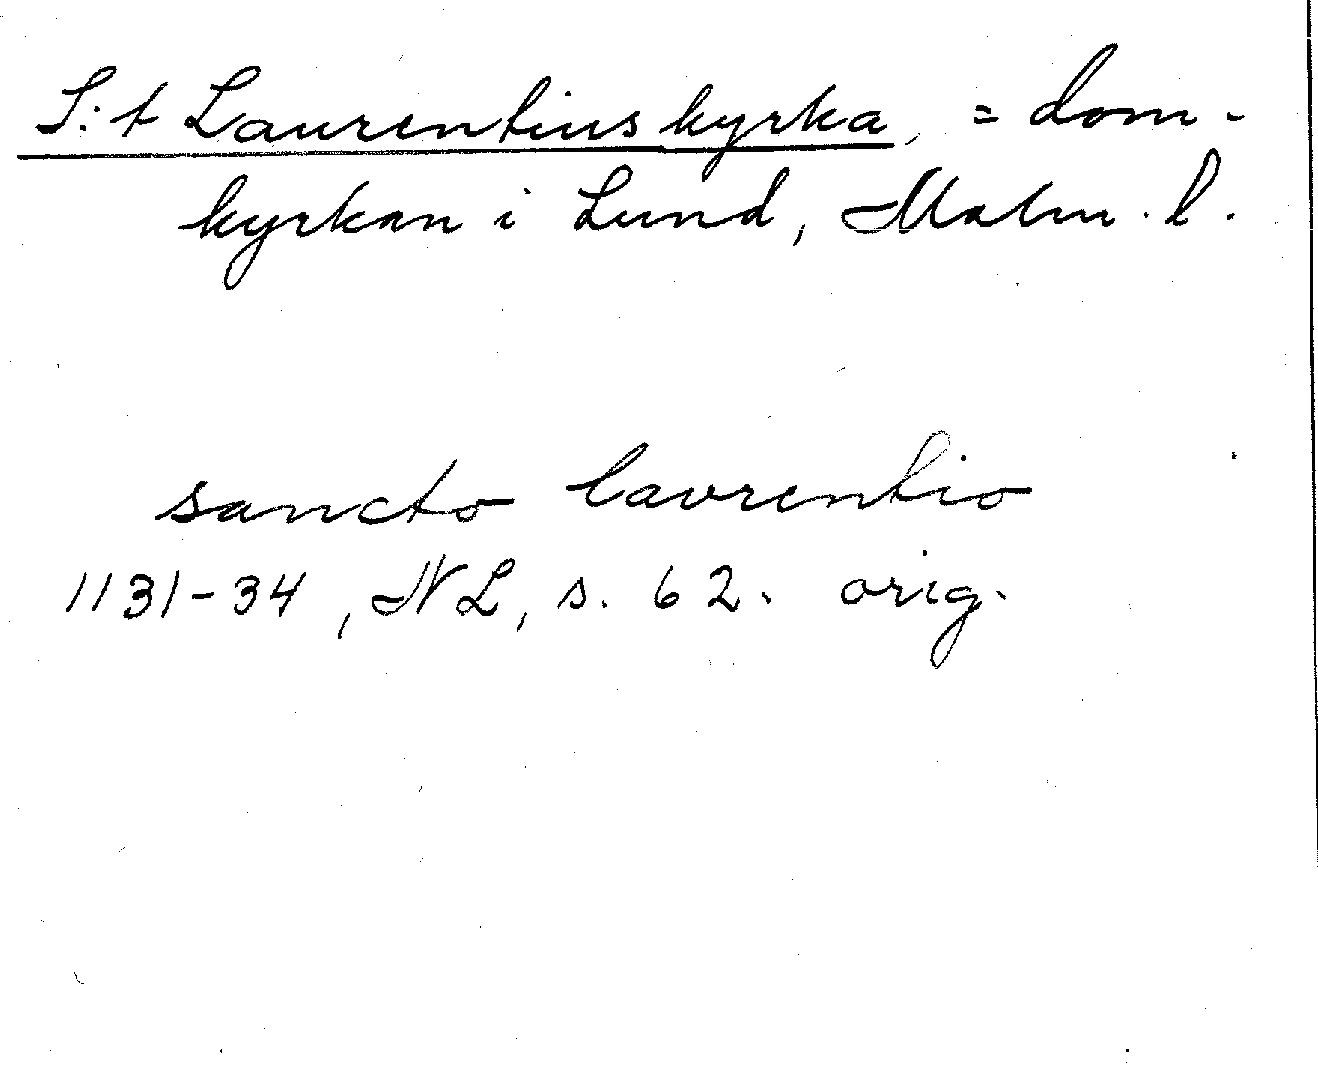 S:t Laurentius kyrka, = dom-
kyrkan i Lund, Malm. l.
sancto lavrentio
1131-34, NL, s. 62. orig.